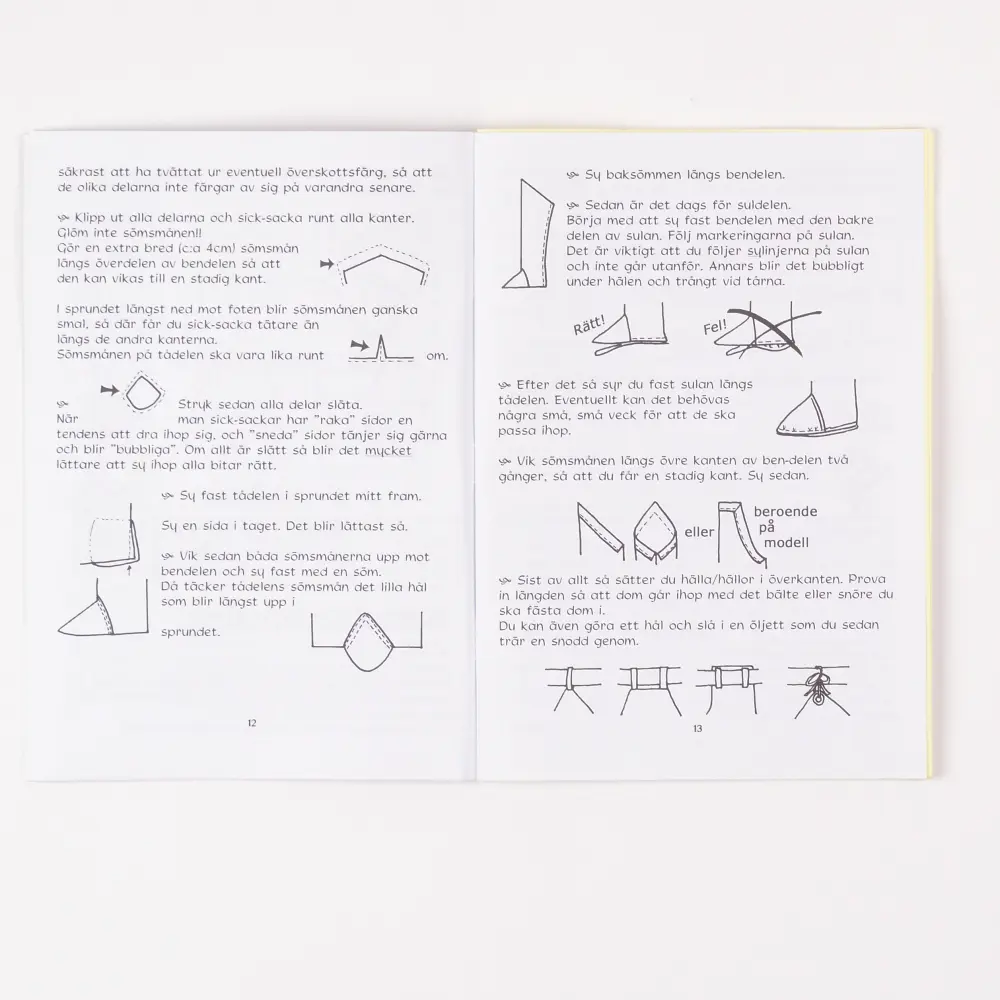 säkrast att ha tvättat ur eventuell överskottsfärg, så att
de olika delarna inte färgar av sig på varandra senare.
Klipp ut alla delarna och sick-sacka runt alla kanter.
Glöm inte sömsmånen!!
Gör en extra bred (c:a 4cm) sömsmån
längs överdelen av bendelen så att
den kan vikas till en stadig kant.
I sprundet längst ned mot foten blir sömsmånen ganska
smal, så där får du sick-sacka tätare än
längs de andra kanterna.
Sömsmånen på tådelen ska vara lika runt om.
Stryk sedan alla delar släta.
När man sick-sackar har "raka" sidor en
tendens att dra ihop sig, och "sneda" sidor tänjer sig gärna
och blir "bubbliga". Om allt är slätt så blir det mycket
lättare att sy ihop alla bitar rätt.
Sy fast tådelen i sprundet mitt fram.
Sy en sida i taget. Det blir lättast så.
Vik sedan båda sömsmånerna upp mot
bendelen och sy fast med en söm.
Då täcker tådelens sömsmån det lilla hål
som blir längst upp i
sprundet.
12
Sy baksömmen längs bendelen.
Sedan är det dags för suldelen.
Börja med att sy fast bendelen med den bakre
delen av sulan. Följ markeringarna på sulan.
Det är viktigt att du följer sylinjerna på sulan
och inte går utanför. Annars blir det bubbligt
under hälen och trångt vid tårna.
Rätt!
Fel!
Efter det så syr du fast sulan längs
tådelen. Eventuellt kan det behövas
några små, små veck för att de ska
passa ihop.
Vik sömsmånen längs övre kanten av ben-delen två
gånger, så att du får en stadig kant. Sy sedan.
eller
beroende
på
modell
Sist av allt så sätter du hälla/hällor i överkanten. Prova
in längden så att dom går ihop med det bälte eller snöre du
ska fästa dom i.
Du kan även göra ett hål och slå i en öljett som du sedan
trär en snodd genom.
13